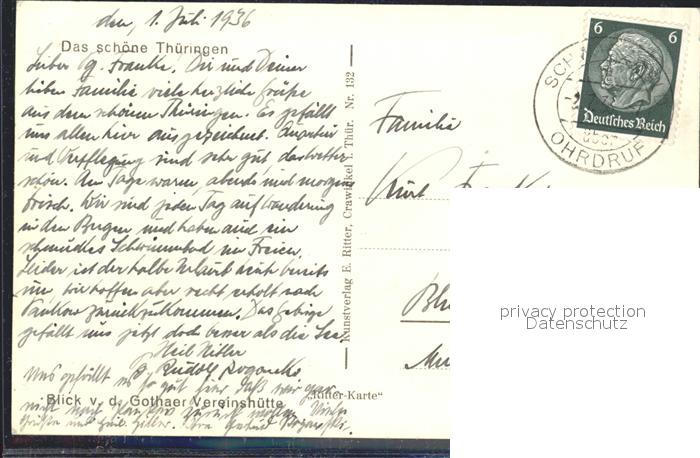 den, 1. Juli 1936
Das schöne Thüringen
Lieber Pg. Franke, Dir und Deiner
lieben Familie viele herzliche Grüße
aus dem schönen Thüringen. Es gefällt
uns allen hier ausgezeichnet. Quartier
und Verpflegung sind sehr gut, das Wetter
schön. Am Tage warm, abends und morgens
frisch. Wir sind jeden Tag auf Wanderung
in den Bergen und haben auch ein
schmuckes Schwimmbad im Freien.
Leider ist der halbe Urlaub auch bereits
um, wir hoffen aber recht erholt nach
Pankow zurückzukommen. Das Gebirge
gefällt uns jetzt doch besser als die See.
Heil Hitler
Rudolf
Uns gefällt es so gut hier, daß wir gar
nicht nach Pankow zurück
Blick v. d. Gothaer Vereinshütte
Grüße und Heil Hitler.
Kunstverlag E. Ritter, Crawinkel i. Thür. Nr. 132
"Ritter-Karte"
Familie
Kurt
6 6
Deutsches Reich
OHRDRUF
privacy protection
Datenschutz